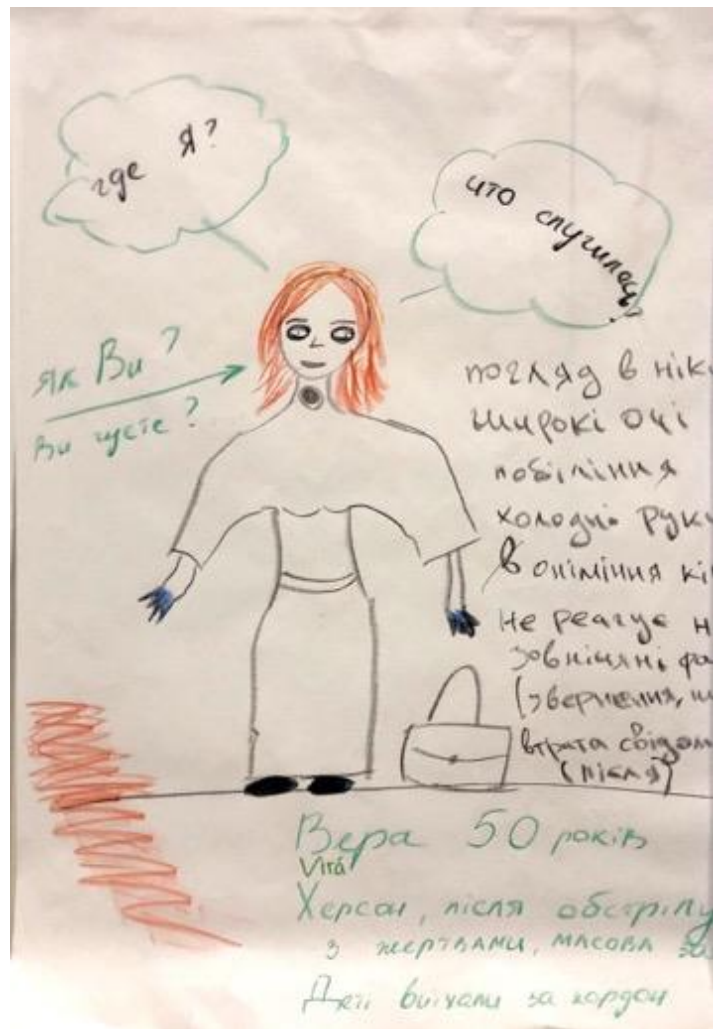 где я?
что случилось?
як Ви?
Ви чуєте?
погляд в ніку
широкі очі
побіління
холодні руки
в оніміння кі
не реагує н
зовнішні фа
(звернення, ш
втрата свідом
(після)
Вера 50 років
Vira
Херсон, після обстрілу
з жертвами, масова за
Діти виїхали за кордон